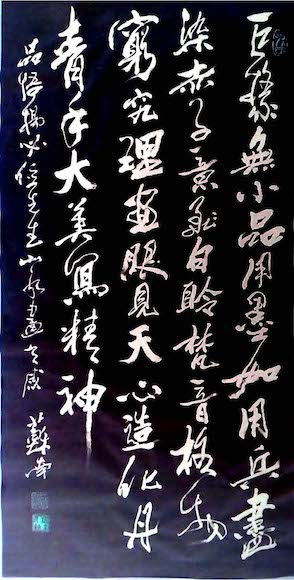 巨椽無小品用墨如用兵盡
染赤子意飛白聆梵音格物
窮究理畫眼見天心造化丹
青手大美寫精神
品悟楊必信先生山水画有感 蘇